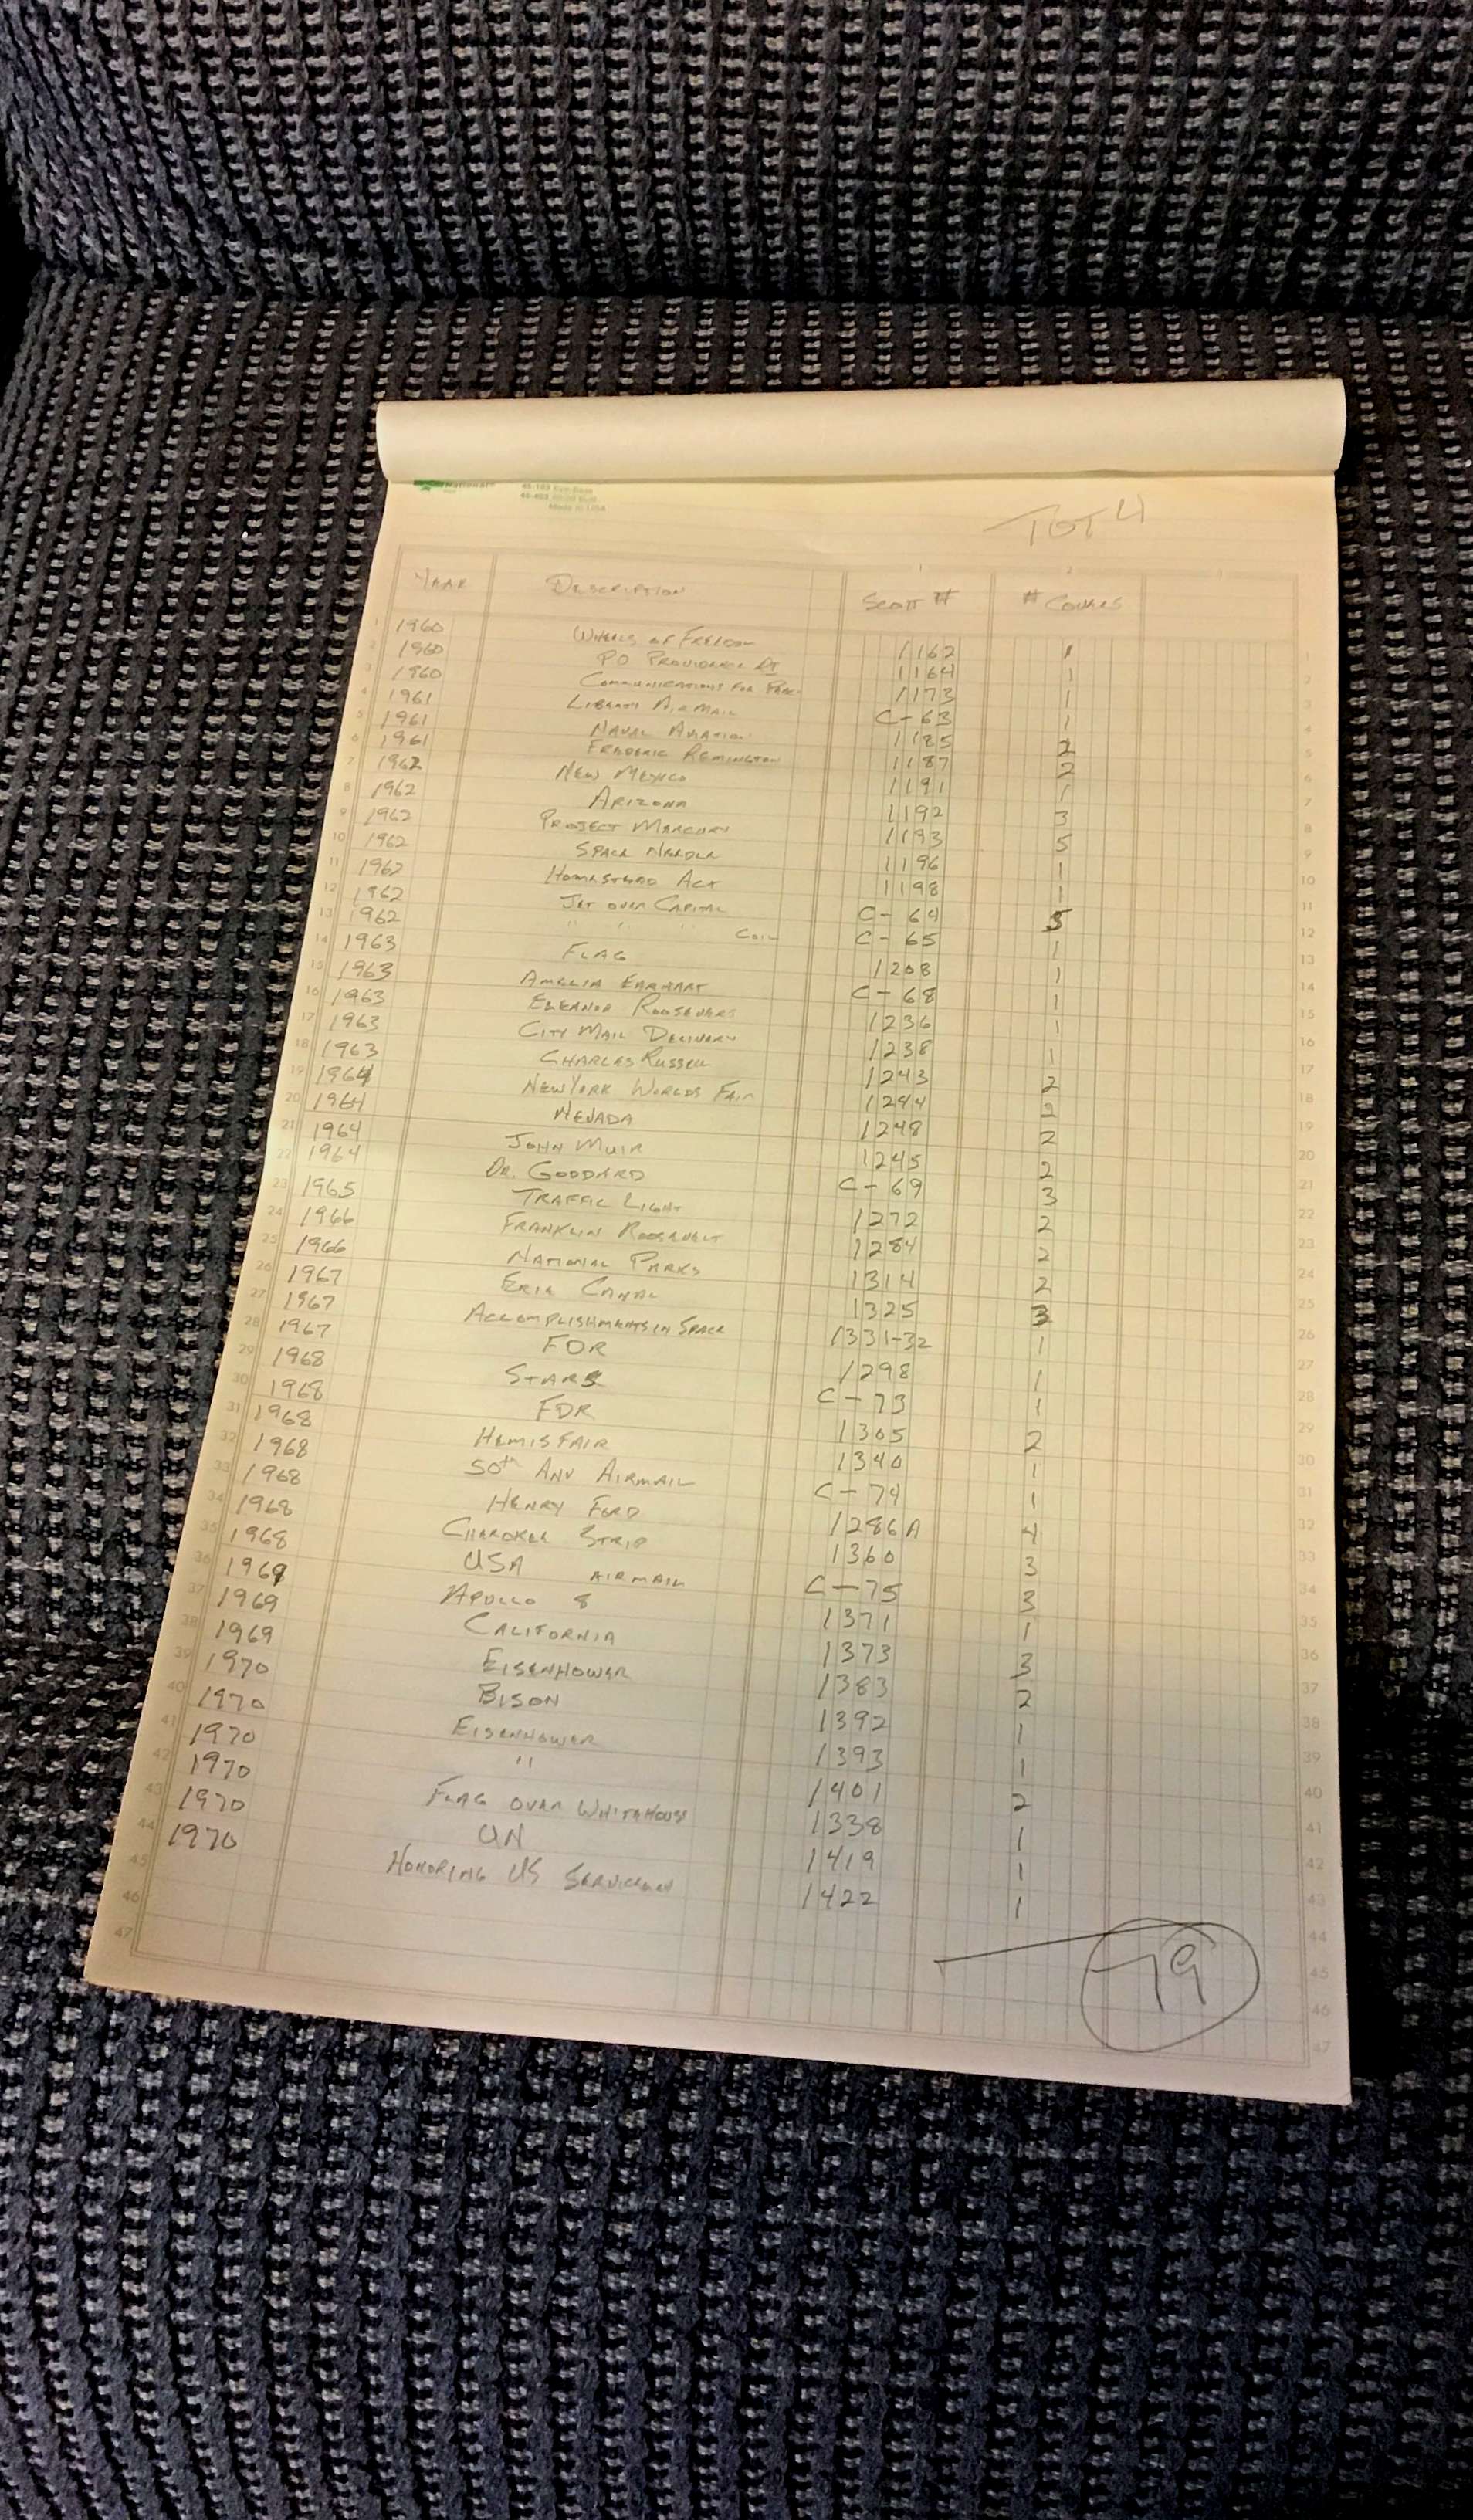 National
45-103 Eye-Ease
45-403 20/20 Buff
Made in USA
TOT 4
1 2 3
YEAR DESCRIPTION SCOTT # # COVERS
1 1960 WHEELS OF FREEDOM 1162 1 1
2 1960 PO PROVIDENCE RI 1164 1 2
3 1960 COMMUNICATIONS FOR PEACE 1173 1 3
4 1961 LIBERTY AIRMAIL C-63 1 4
5 1961 NAVAL AVIATION 1185 2 5
6 1961 FREDERIC REMINGTON 1187 2 6
7 1962 NEW MEXICO 1191 1 7
8 1962 ARIZONA 1192 3 8
9 1962 PROJECT MERCURY 1193 5 9
10 1962 SPACE NEEDLE 1196 1 10
11 1962 HOMESTEAD ACT 1198 1 11
12 1962 JET OVER CAPITAL C-64 5 12
13 1962 " " " COIL C-65 1 13
14 1963 FLAG 1208 1 14
15 1963 AMELIA EARHART C-68 1 15
16 1963 ELEANOR ROOSEVELT 1236 1 16
17 1963 CITY MAIL DELIVERY 1238 1 17
18 1963 CHARLES RUSSELL 1243 2 18
19 1964 NEW YORK WORLDS FAIR 1244 2 19
20 1964 NEVADA 1248 2 20
21 1964 JOHN MUIR 1245 2 21
22 1964 DR. GODDARD C-69 3 22
23 1965 TRAFFIC LIGHT 1272 2 23
24 1966 FRANKLIN ROOSEVELT 1284 2 24
25 1966 NATIONAL PARKS 1314 2 25
26 1967 ERIE CANAL 1325 3 26
27 1967 ACCOMPLISHMENTS IN SPACE 1331-32 1 27
28 1967 FDR 1298 1 28
29 1968 STARS C-73 1 29
30 1968 FDR 1305 2 30
31 1968 HEMISFAIR 1340 1 31
32 1968 50th ANV AIRMAIL C-74 1 32
33 1968 HENRY FORD 1286A 4 33
34 1968 CHEROKEE STRIP 1360 3 34
35 1968 USA AIRMAIL C-75 3 35
36 1969 APOLLO 8 1371 1 36
37 1969 CALIFORNIA 1373 3 37
38 1969 EISENHOWER 1383 2 38
39 1970 BISON 1392 1 39
40 1970 EISENHOWER 1393 1 40
41 1970 " 1401 2 41
42 1970 FLAG OVER WHITEHOUSE 1338 1 42
43 1970 UN 1419 1 43
44 1970 HONORING US SERVICEMEN 1422 1 44
45 79 45
46 46
47 47